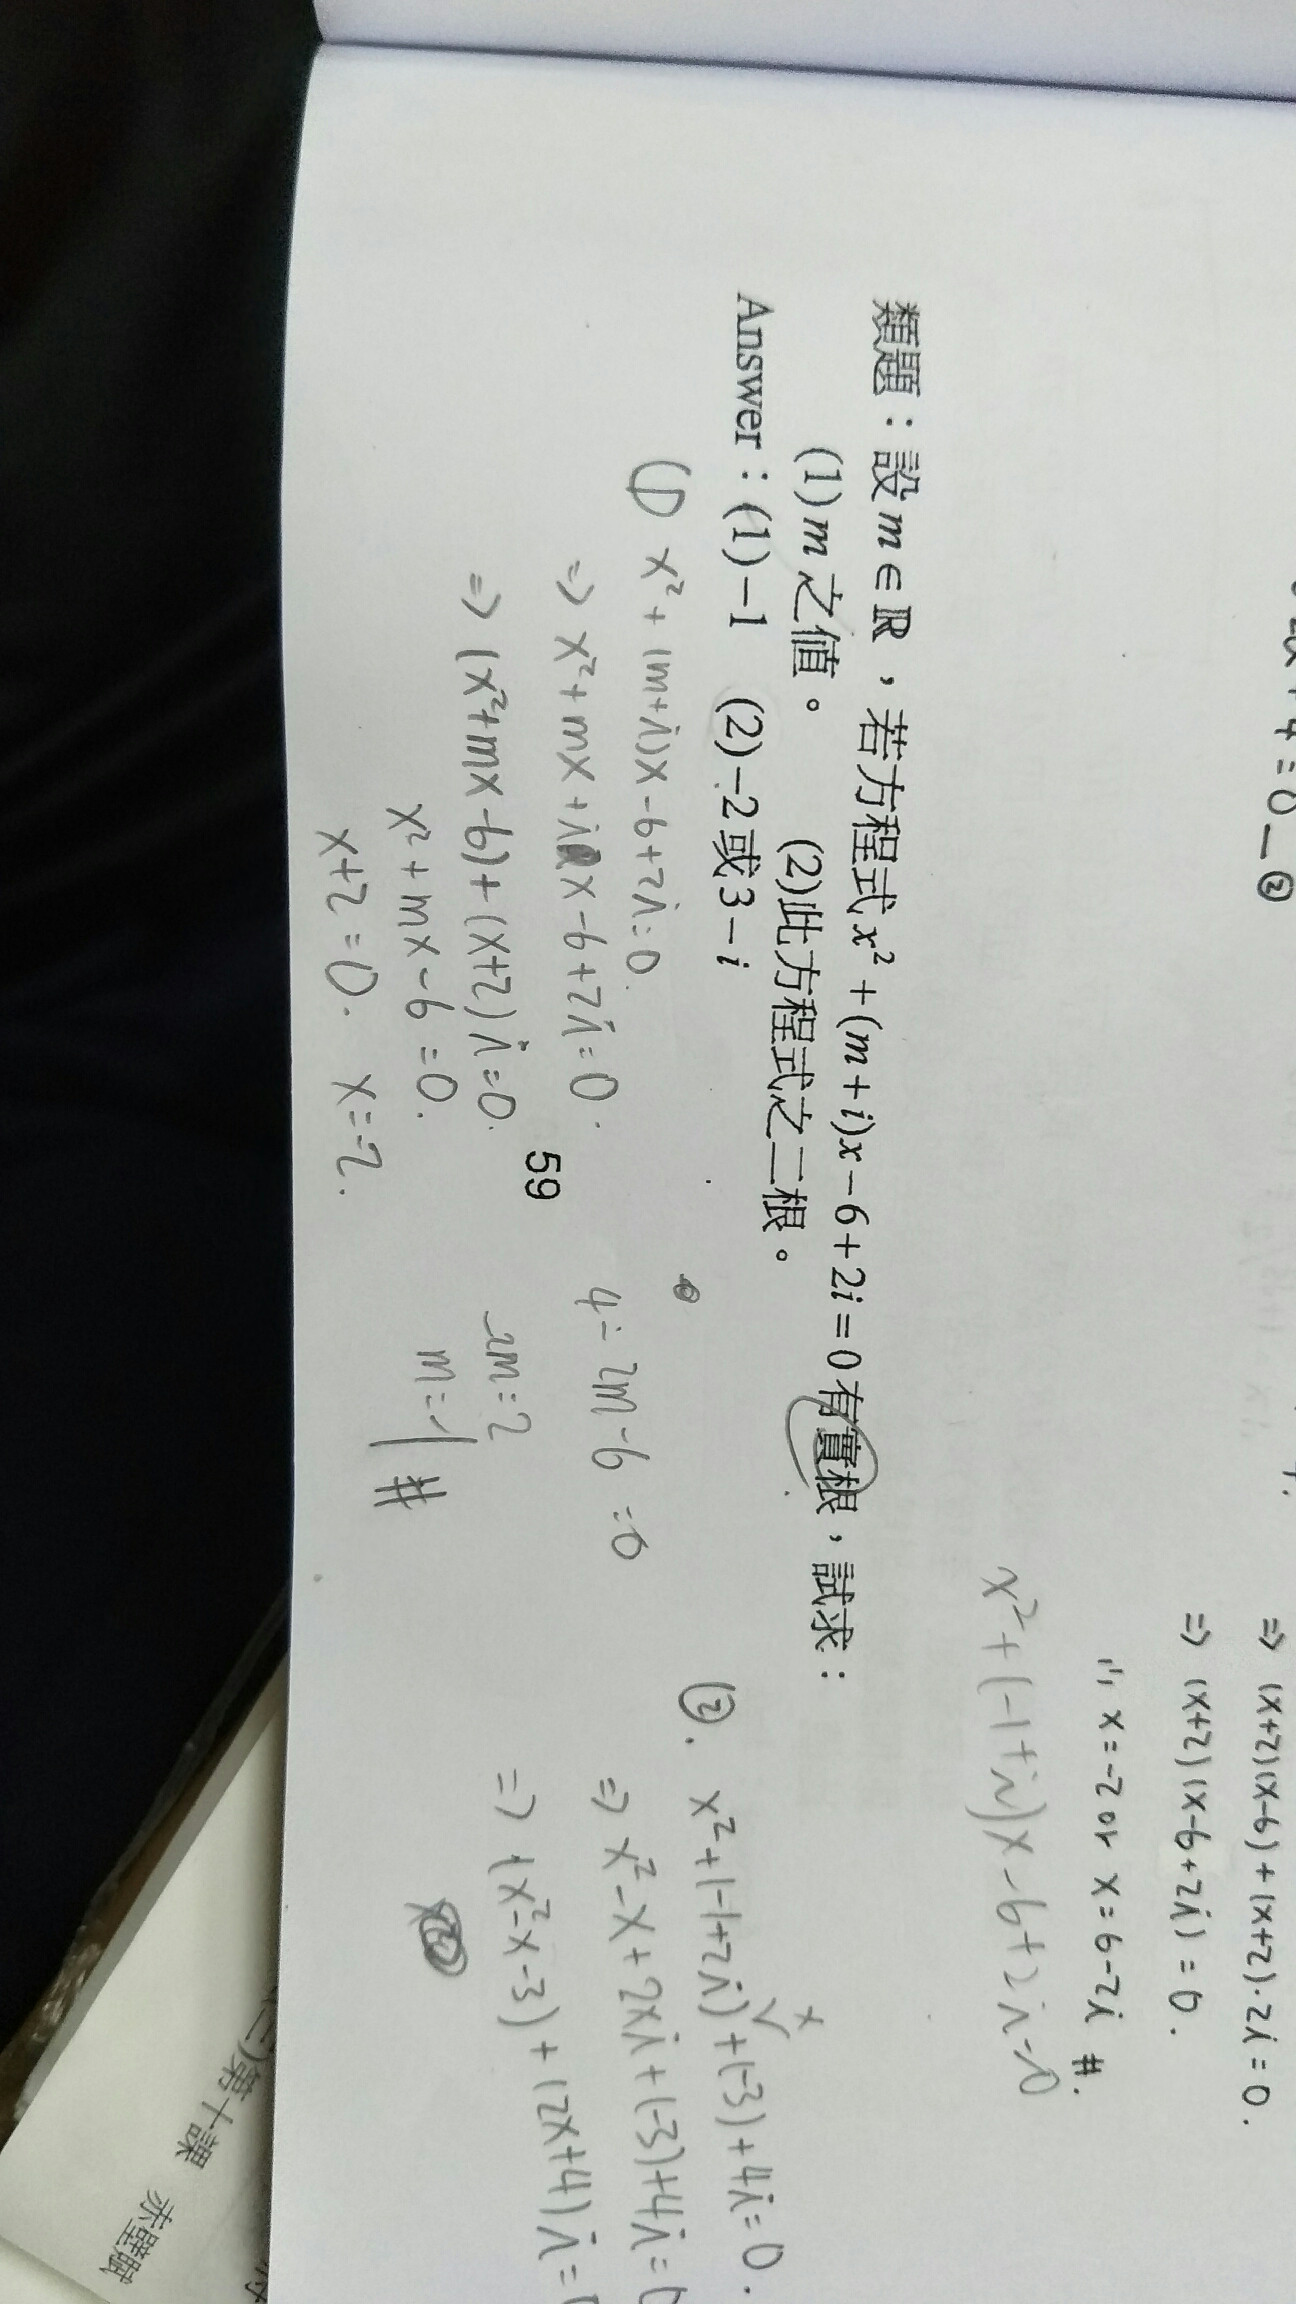 =0—②
⇒ (x+2)(x-6)+(x+2)·2i=0.
⇒ (x+2)(x-6+2i)=0.
x=-2 or x=6-2i #.
x²+(-1+i)x-6+2i=0
類題：設m∈ℝ，若方程式x²+(m+i)x-6+2i=0有實根，試求：
(1)m之值。 (2)此方程式之二根。
Answer：(1)-1 (2)-2或3-i
(1) x²+(m+i)x-6+2i=0.
⇒ x²+mx+ix-6+2i=0.
⇒ (x²+mx-6)+(x+2)i=0.
x²+mx-6=0.
x+2=0. x=-2.
4-2m-6=0
-2m=2
m=-1 #
(2). x²+(-1+2i)x+(-3)+4i=0.
⇒ x²-x+2xi+(-3)+4i=0
⇒ (x²-x-3)+(2x+4)i=0
59
第十課 赤壁賦